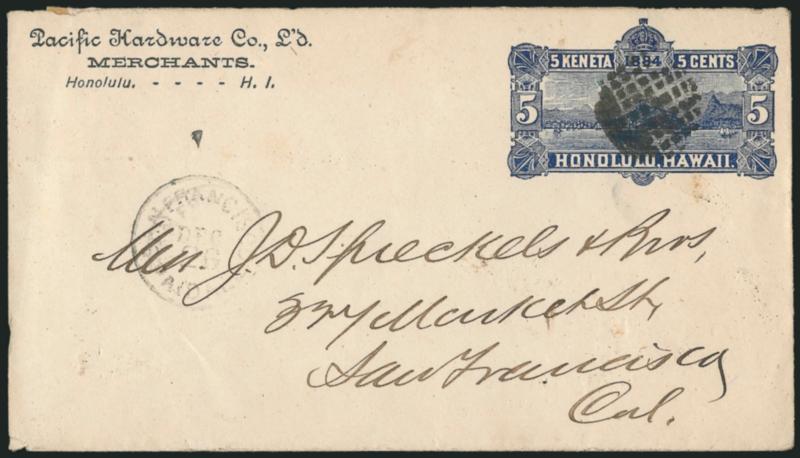 Pacific Hardware Co., L'd.
MERCHANTS.
Honolulu. - - - - H. I.
5 KENETA 1884 5 CENTS
5 5
HONOLULU, HAWAII.
N FRANCIS
DEC
PAID
Mess J. D. Spreckels & Bros,
327 Market St,
San Francisco
Cal.